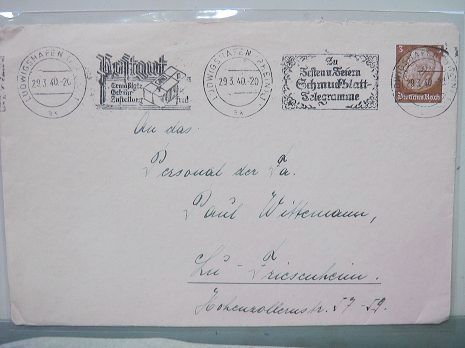 LUDWIGSHAFEN (RHEIN) 1
29.3.40.-20
Postgut
Ermäßigte
Gebühr
Zustellung
LUDWIGSHAFEN (RHEIN) 1
29.3.40.-20
Zu
Festen u. Feiern
Schmuckblatt-
Telegramme
3
Deutsches Reich
An das
Personal der Fa.
Paul Wittemann,
Lu-Friesenheim.
Hohenzollernstr. 57-59.